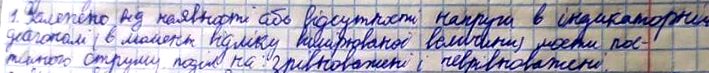 1. Залежно від наявності або відсутності напруги в індикаторній
діагоналі (в момент відліку вимірюваної величини) мости пос-
тійного струму поділ. на: зрівноважені і незрівноважені.